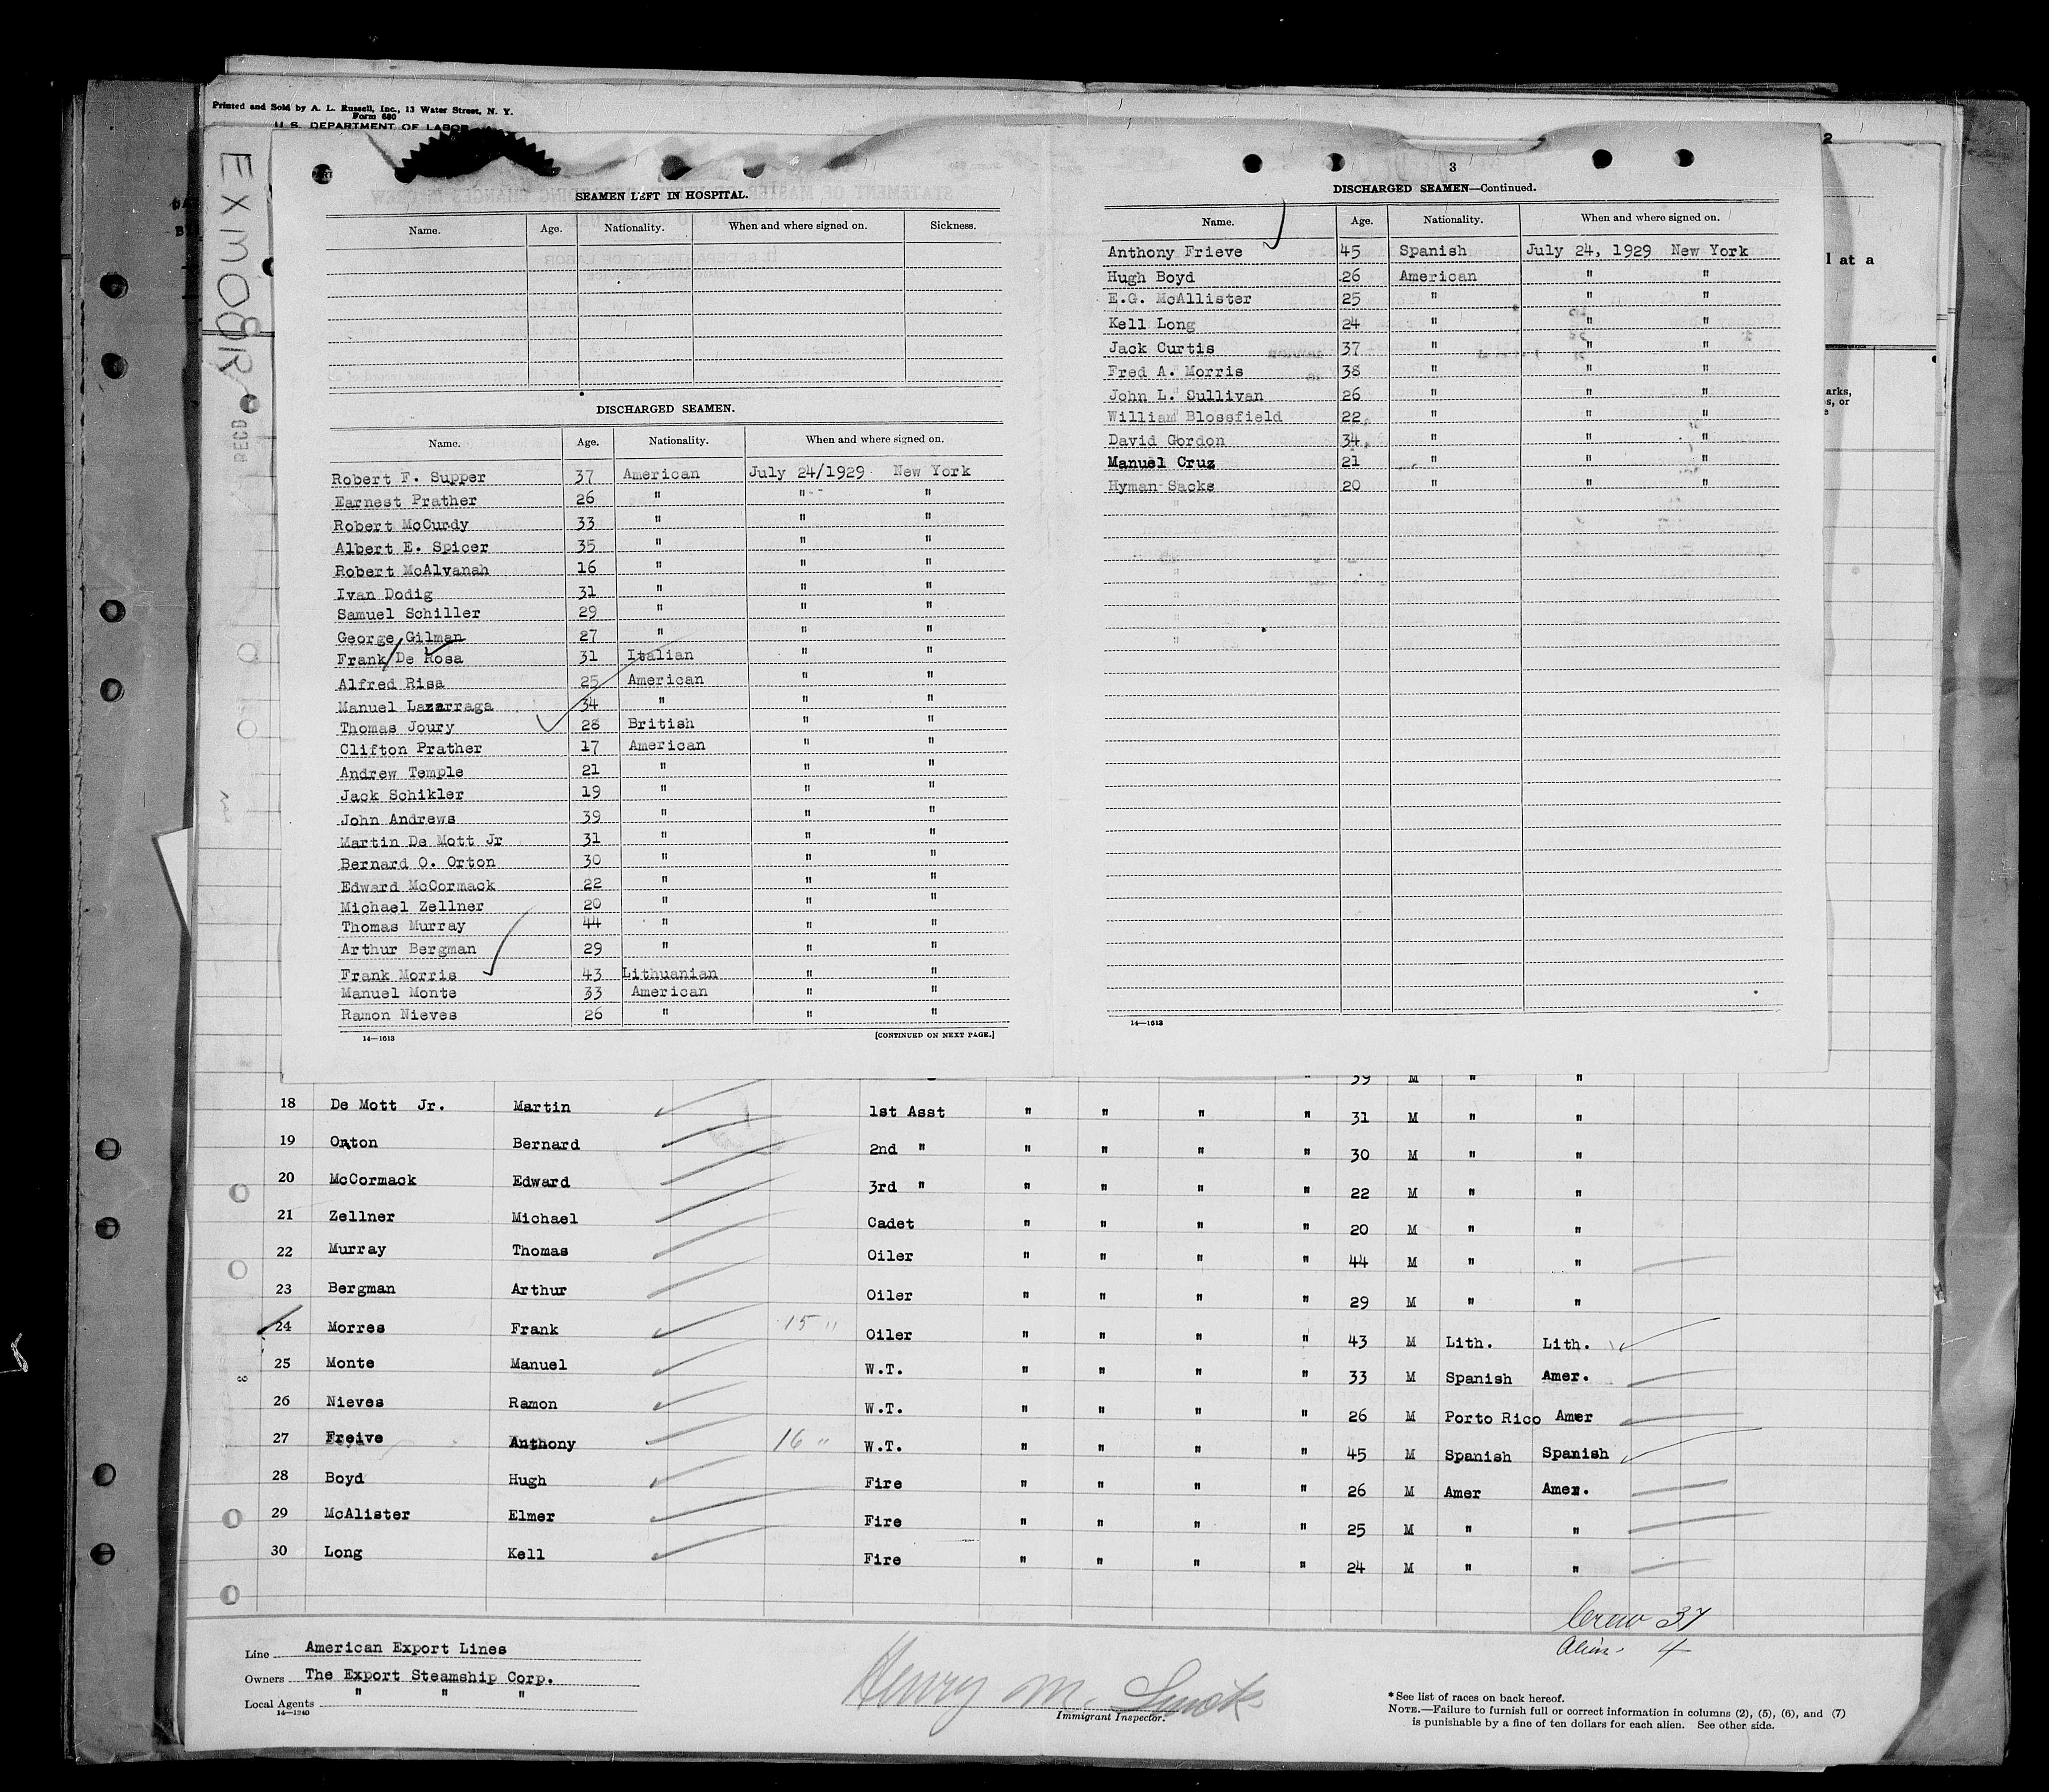 Printed and Sold by A. L. Russell, Inc., 13 Water Street, N. Y.
Form 680
U. S. DEPARTMENT OF LABOR
EXMOOR
RECD
2
l at a
arks,
s, or
e
SEAMEN LEFT IN HOSPITAL.
Name. Age. Nationality. When and where signed on. Sickness.
DISCHARGED SEAMEN.
Name. Age. Nationality. When and where signed on.
Robert F. Supper 37 American July 24/1929 New York
Earnest Prather 26 " " "
Robert McCurdy 33 " " "
Albert E. Spicer 35 " " "
Robert McAlvanah 16 " " "
Ivan Dodig 31 " " "
Samuel Schiller 29 " " "
George Gilman 27 " " "
Frank De Rosa 31 Italian " "
Alfred Risa 25 American " "
Manuel Lazarraga 34 " " "
Thomas Joury 28 British " "
Clifton Prather 17 American " "
Andrew Temple 21 " " "
Jack Schikler 19 " " "
John Andrews 39 " " "
Martin De Mott Jr 31 " " "
Bernard O. Orton 30 " " "
Edward McCormack 22 " " "
Michael Zellner 20 " " "
Thomas Murray 44 " " "
Arthur Bergman 29 " " "
Frank Morris 43 Lithuanian " "
Manuel Monte 33 American " "
Ramon Nieves 26 " " "
14—1613 [CONTINUED ON NEXT PAGE.]
3
DISCHARGED SEAMEN—Continued.
Name. Age. Nationality. When and where signed on.
Anthony Frieve 45 Spanish July 24, 1929 New York
Hugh Boyd 26 American " "
E.G. McAllister 25 " " "
Kell Long 24 " " "
Jack Curtis 37 " " "
Fred A. Morris 38 " " "
John L. Sullivan 26 " " "
William Blossfield 22 " " "
David Gordon 34 " " "
Manuel Cruz 21 " " "
Hyman Sacks 20 " " "
14—1613
" 39 M " "
18 De Mott Jr. Martin 1st Asst " " " " 31 M " "
19 Orton Bernard 2nd " " " " " 30 M " "
20 McCormack Edward 3rd " " " " " 22 M " "
21 Zellner Michael Cadet " " " " 20 M " "
22 Murray Thomas Oiler " " " " 44 M " "
23 Bergman Arthur Oiler " " " " 29 M " "
24 Morres Frank 15 " Oiler " " " " 43 M Lith. Lith.
25 Monte Manuel W.T. " " " " 33 M Spanish Amer.
26 Nieves Ramon W.T. " " " " 26 M Porto Rico Amer
27 Freive Anthony 16 " W.T. " " " " 45 M Spanish Spanish
28 Boyd Hugh Fire " " " " 26 M Amer Amer.
29 McAlister Elmer Fire " " " " 25 M " "
30 Long Kell Fire " " " " 24 M " "
Crew 37
Alien 4
Line American Export Lines
Owners The Export Steamship Corp.
Local Agents " " "
14—1240
Henry M.
Immigrant Inspector.
* See list of races on back hereof.
NOTE.—Failure to furnish full or correct information in columns (2), (5), (6), and (7)
is punishable by a fine of ten dollars for each alien. See other side.